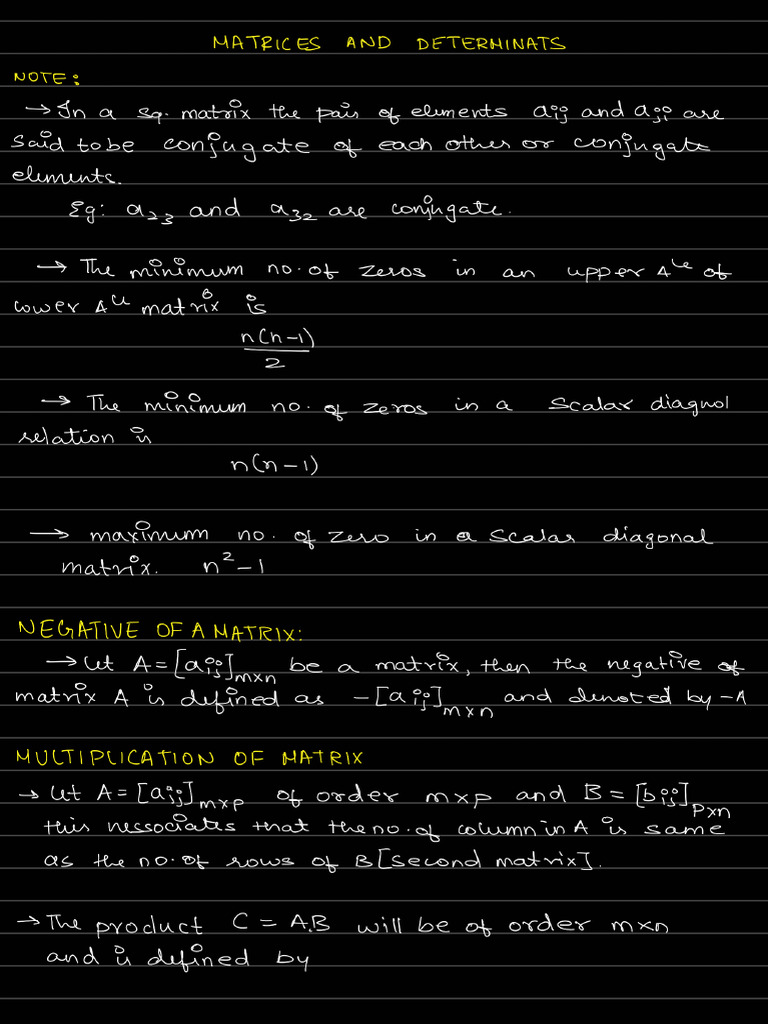 MATRICES AND DETERMINATS
NOTE:
→ In a sq. matrix the pair of elements aij and aji are
said to be conjugate of each other or conjugate
elements.
Eg: a23 and a32 are conjugate.
→ The minimum no. of zeros in an upper Δle of
lower Δle matrix is
n(n-1)
2
→ The minimum no. of zeros in a scalar diagnol
relation is
n(n-1)
→ maximum no. of zero in a scalar diagonal
matrix. n²-1
NEGATIVE OF A MATRIX:
→ let A = [aij]m×n be a matrix, then the negative of
matrix A is defined as -[aij]m×n and denoted by -A
MULTIPLICATION OF MATRIX
→ let A = [aij]m×p of order m×p and B = [bij]p×n
this nessociates that the no. of column in A is same
as the no. of rows of B [second matrix].
→ The product C = A.B will be of order m×n
and is defined by